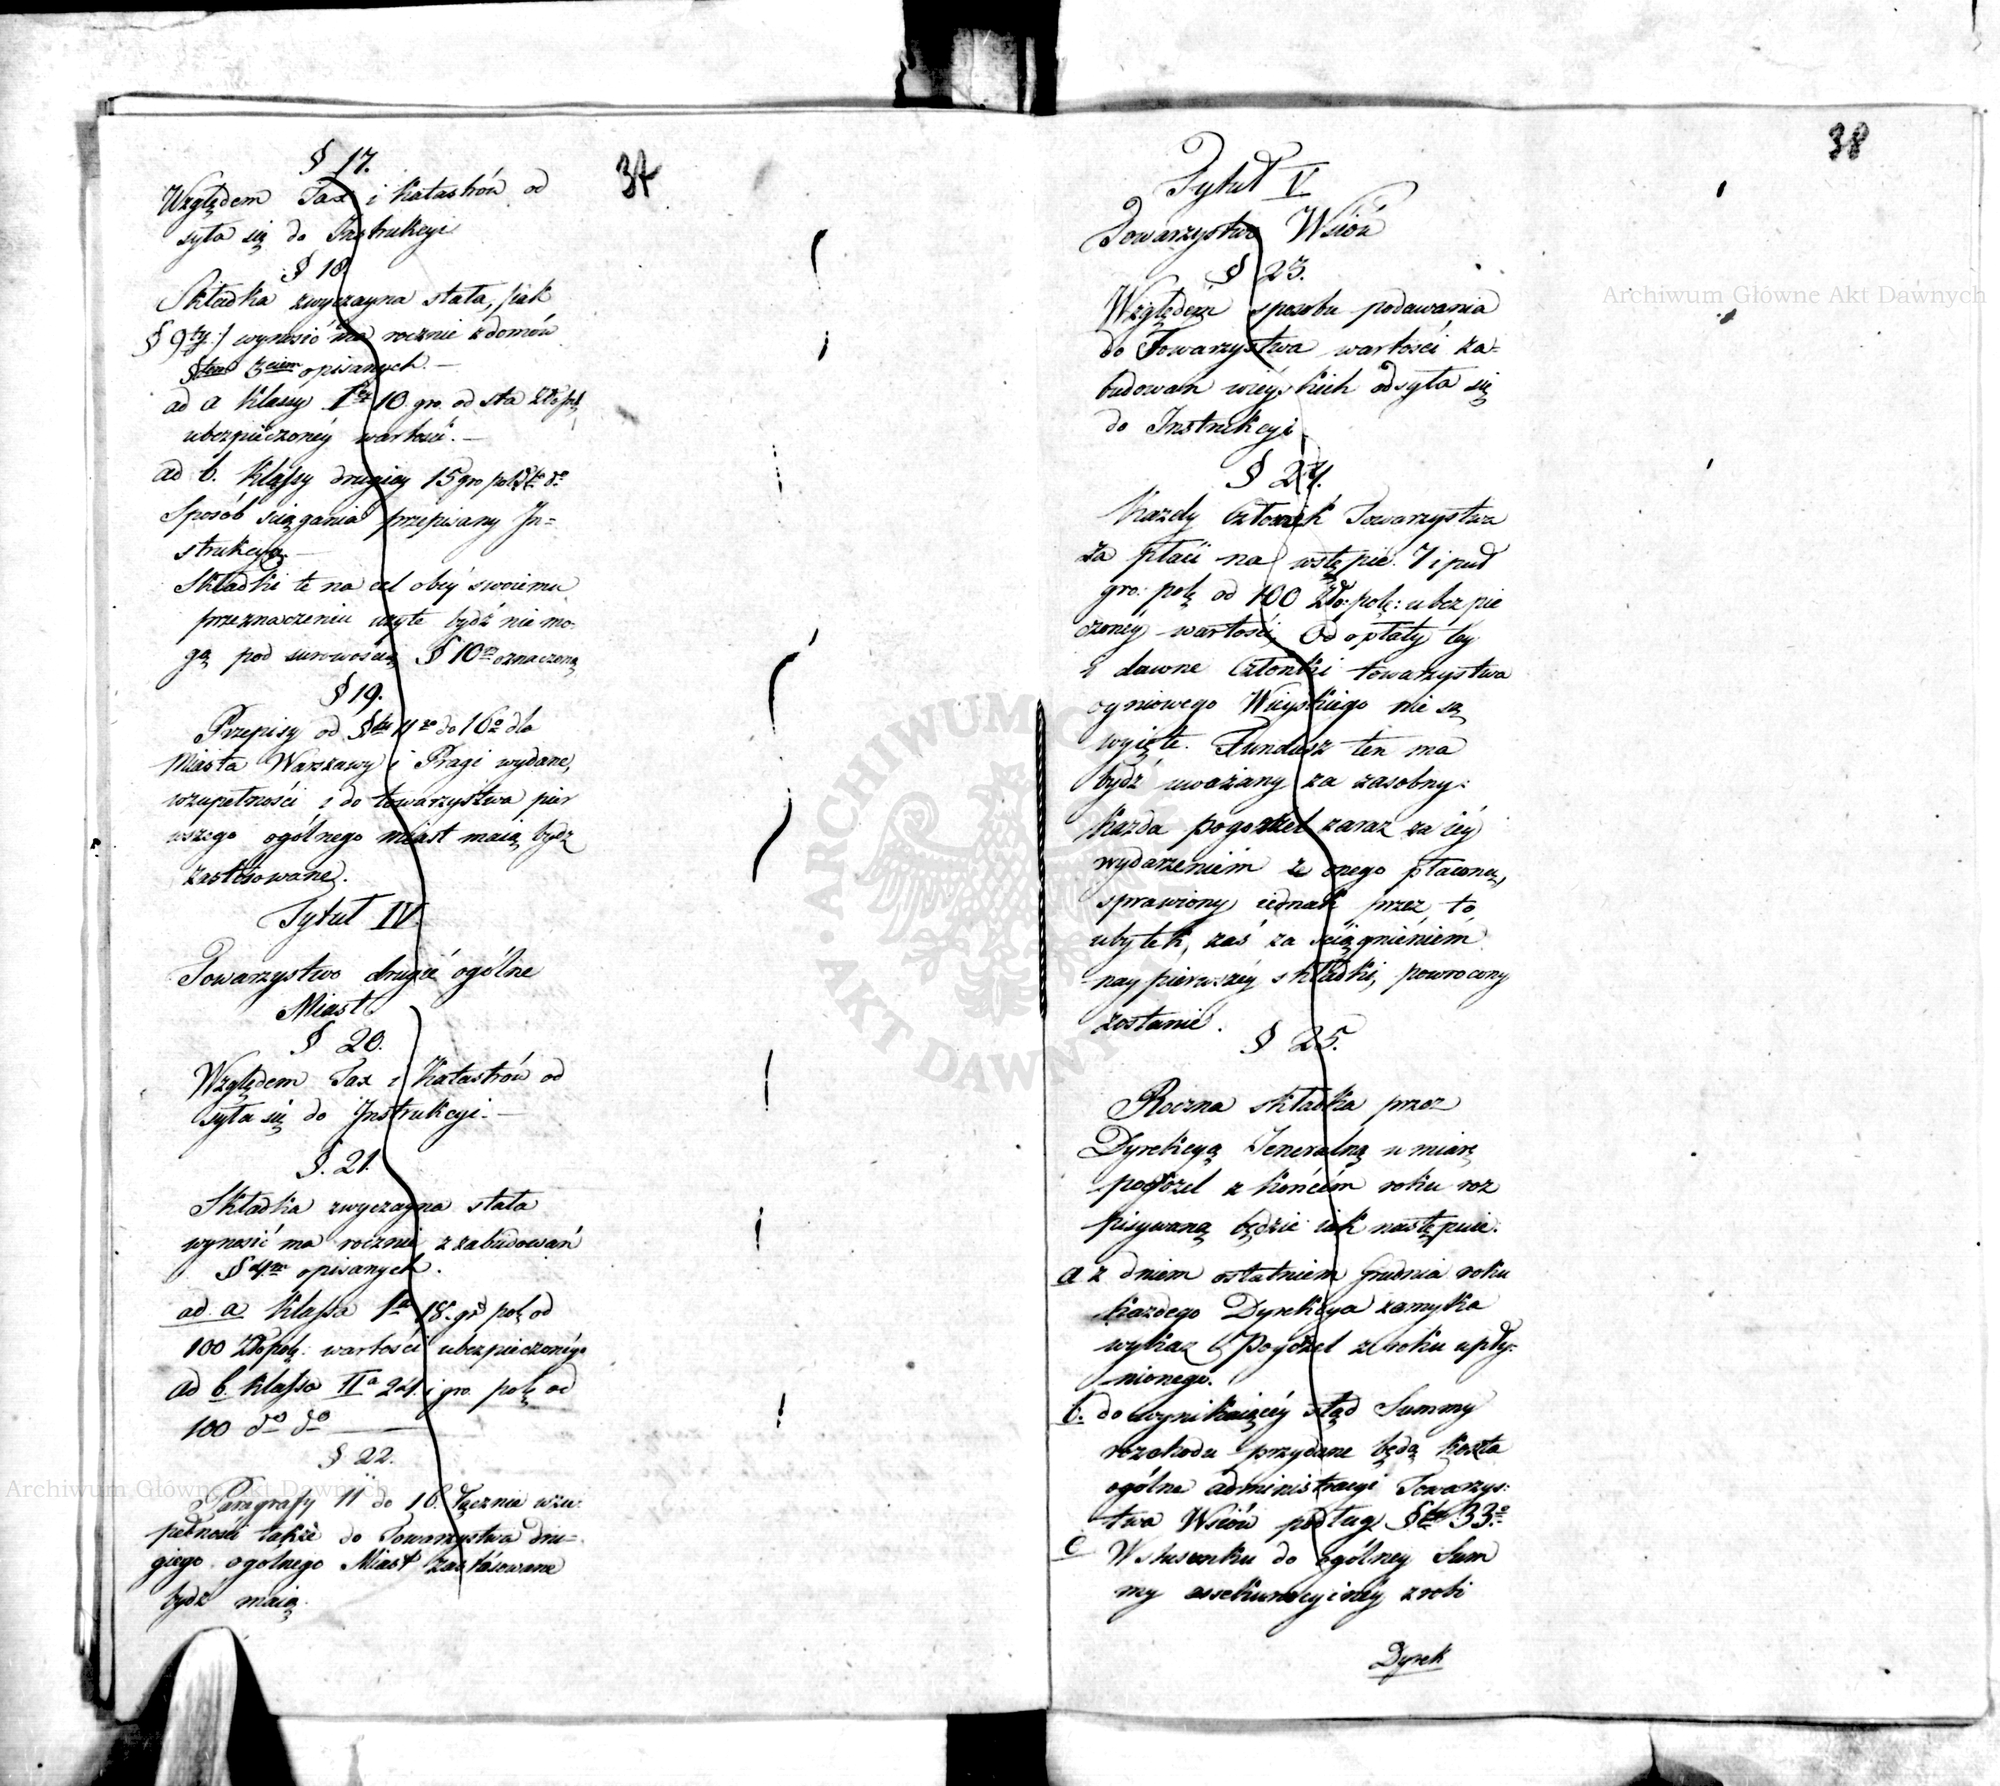 37
§ 17.
Względem Tax i Katastrów od
syła się do Instrukcyi
§ 18.
Składka zwyczayna stała, /:iak
§ 9ty:/ wynosić ma rocznie z domów
§tem 3cim opisanych. —
ad a Klassy 1éy 10. gro. od sta Złp.
ubezpieczonéy wartości. —
ad b. Klassy drugiey 15 gro pol. do do
Sposób sciągania przepisany In=
strukcyą. —
Składki te na cel obcy swoiemu
przeznaczeniu użyte bydź nie mo-
gą pod surowością § 10m oznaczoną
§ 19.
Przepisy od §tu 11go do 16o dla
Miasta Warszawy i Pragi wydane,
wzupełności i do towarzystwa pier
wszego ogólnego miast maią bydz
zastosowane.
Tytuł IV.
Towarzystwo drugie ogólne
Miast
§ 20.
Względem Tax i Katastrów od
syła się do Instrukcyi. —
§. 21.
Składka zwyczayna stała
wynosić ma rocznie z zabudowań
§ 4m opisanych.
ad a Klassa 1a 18. gr pol. od
100 Złopol: wartości ubezpieczonéy
ad b. Klassa IIa 24. gro. pol. od
100 do do —
§ 22.
Paragrafy 11 do 16. łącznie wzu-
pełności także do Towarzystwa dru-
giego ogolnego Miast zastósowane
bydź maią.
38
Tytuł V
Towarzystwo Wsiów
§ 23.
Względem sposobu podawania
do Towarzystwa wartości za=
budowań wieyskich odsyła się
do Instrukcyi
§ 24.
Kazdy Członek Towarzystwa
za płaci na wstępie 7 i puł
gro: pol. od 100 Zło: pol: ubezpie
czonéy wartości, Od opłaty téy
i dawne Członki towarzystwa
ogniowego Wieyskiego nie są
wyięte. Fundusz ten ma
bydź uważany za zasobny:
Każda pogorzel zaraz za iéy
wydarzeniém z onego płacona,
sprawiony iednak przez to
ubytek, zaś za sciągnieniém
naypierwszéy składki, powrocony
zostanie.
§ 25.
Roczna składka przez
Dyrekcyą Jeneralną w miarę
pogorzel z końcém roku roz
pisywaną będzie iak następuie:
a z dniem ostatniem Grudnia roku
każdego Dyrekcya zamyka
wykaz Pogorzel z roku upły-
nionego.
b. do wynikaiącéy stąd Summy
rozchodu przydane będą koszta
ogólne administracyi Towarzys-
twa Wsiów podług §tu 33o
c W stosunku do ogólney Sum
my assekuracyinéy zrobi
Dyrek
Archiwum Główne Akt Dawnych
Archiwum Główne Akt Dawnych